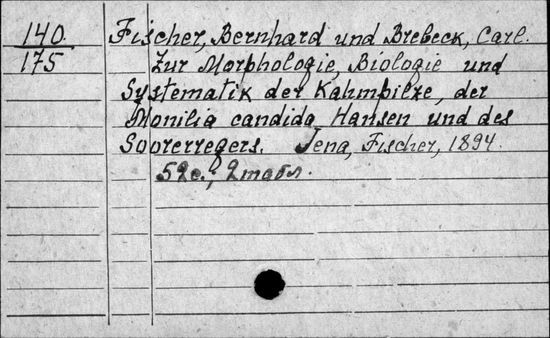 140
175
Fischer, Bernhard und Brebeck, Carl.
Zur Morphologie, Biologie und
Systematik der Kahmpilze, der
Monilia candida Hansen und des
Soorerregers. Jena, Fischer, 1894.
52c.; 2табл.